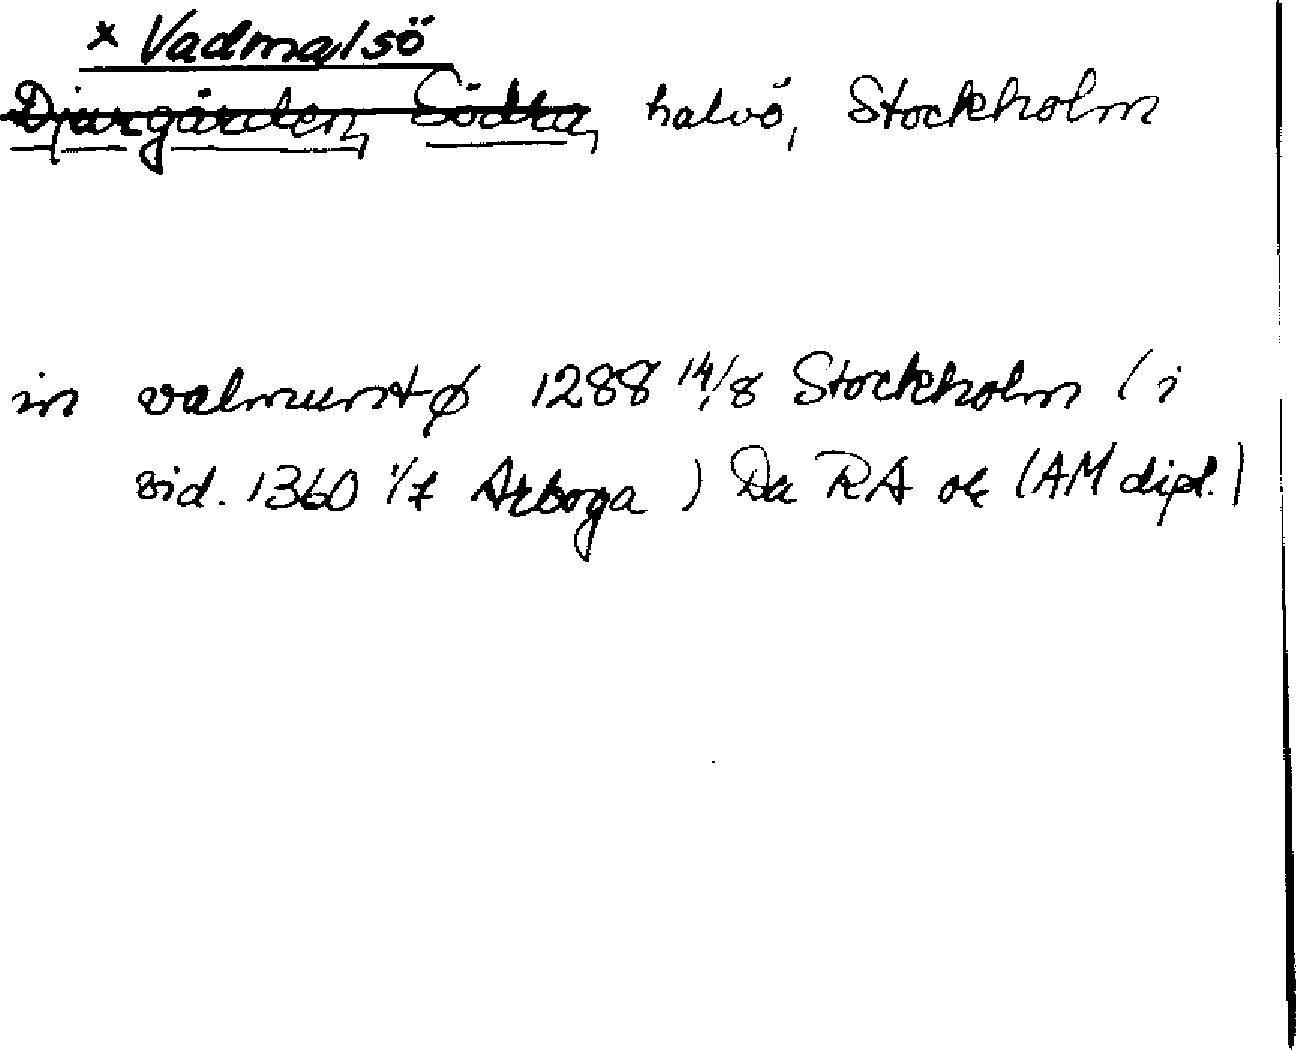 × Vadmalsö
Djurgården, Södra, halvö, Stockholm
in valmunstø 1288 14/8 Stockholm (i
vid. 1360 1/7 Arboga) Da RA ok (AM dipl.)